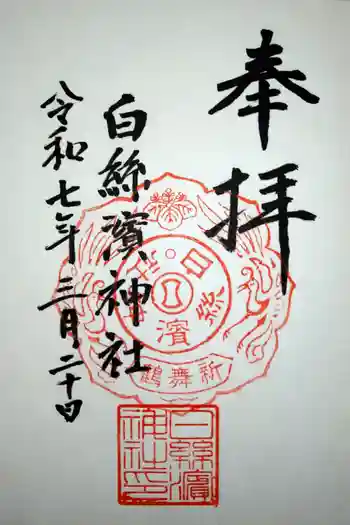 奉拝
白絲濱神社
令和七年三月二十日
白絲濱神社
新舞鶴
白絲濱神社印